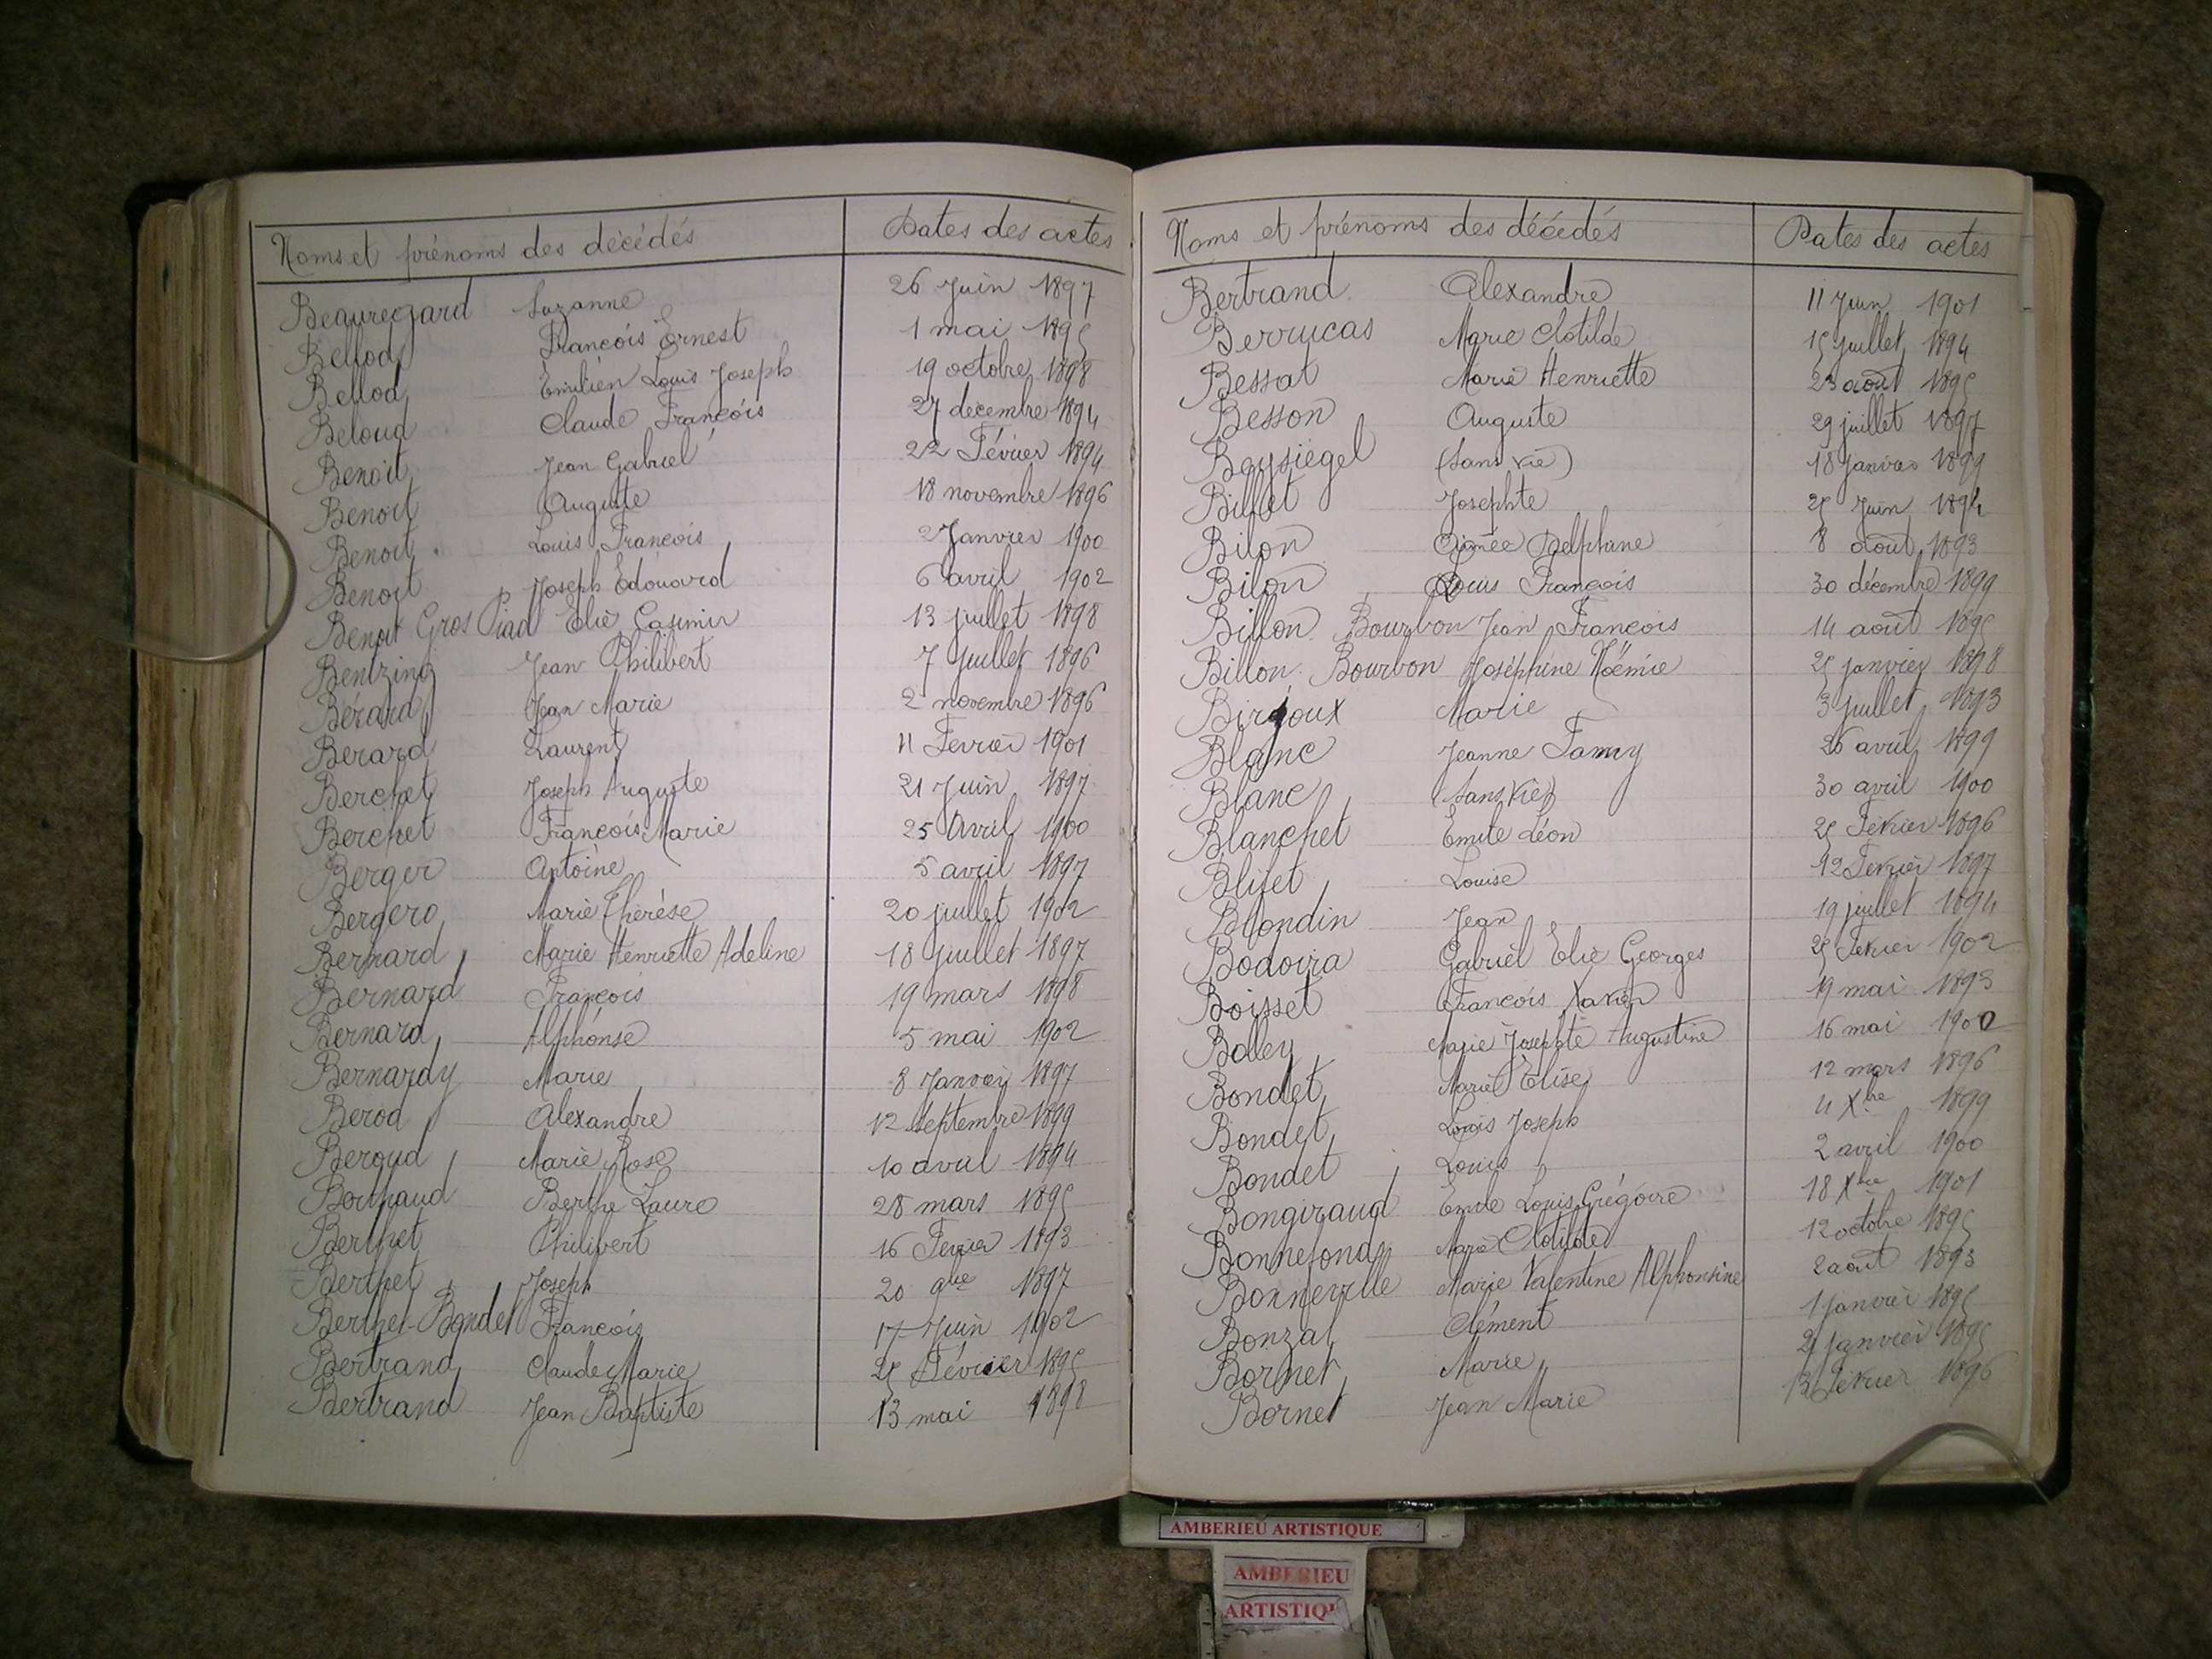 Noms et prénoms des décédés Dates des actes
Beauregard Suzanne 26 Juin 1897
Bellod François Ernest 1 mai 1895
Bellod Emilien Louis Joseph 19 octobre 1898
Beloud Claude François 27 décembre 1894
Benoit Jean Gabriel 22 Février 1894
Benoit Auguste 18 novembre 1896
Benoit Louis François 2 Janvier 1900
Benoit Joseph Edouard 6 avril 1902
Benoit Gros Piad Elie Casimir 13 juillet 1898
Bentzing Jean Philibert 7 Juillet 1896
Bérard Jean Marie 2 novembre 1896
Berard Laurent 11 Fevrier 1901
Berchet Joseph Auguste 21 Juin 1897
Berchet François Marie 25 Avril 1900
Berger Antoine 5 avril 1897
Bergero Marie Thérèse 20 juillet 1902
Bernard Marie Henriette Adeline 18 juillet 1897
Bernard François 19 mars 1898
Bernard Alphonse 5 mai 1902
Bernardy Marie 8 Janvier 1897
Berod Alexandre 12 Septembre 1899
Beroud Marie Rose 10 avril 1894
Berthaud Berthe Laure 28 mars 1895
Berthet Philibert 16 Fevrier 1893
Berthet Joseph 20 9bre 1897
Berthet-Bondet François 17 Juin 1902
Bertrand Claude Marie 25 Février 1895
Bertrand Jean Baptiste 13 mai 1898
Noms et prénoms des décédés Dates des actes
Bertrand Alexandre 11 Juin 1901
Berrucas Marie Clotilde 15 juillet 1894
Bessat Marie Henriette 23 août 1895
Besson Auguste 29 juillet 1897
Beysiegel (Sans vie) 18 Janvier 1899
Billet Josephte 25 Juin 1894
Bilon Aimée Delphine 8 août 1893
Bilon Louis François 30 décembre 1899
Billon Bourbon Jean François 14 août 1895
Billon Bourbon Joséphine Noémie 25 janvier 1898
Birgoux Marie 3 juillet 1893
Blanc Jeanne Fanny 26 avril 1899
Blanc (Sans vie) 30 avril 1900
Blanchet Emile Léon 25 Février 1896
Blitet Louise 12 Fevrier 1897
Blondin Jean 19 juillet 1894
Bodoira Gabriel Elie Georges 25 Fevrier 1902
Boisset François Xavier 19 mai 1893
Bolley Marie Josephte Augustine 16 mai 1900
Bondet Marie Elise 12 mars 1896
Bondet Louis Joseph 4 Xbre 1899
Bondet Louis 2 avril 1900
Bongiraud Emile Louis Grégoire 18 Xbre 1901
Bonnefond Marie Clotilde 12 octobre 1895
Bonneville Marie Valentine Alphonsine 2 août 1893
Bonzal Clément 1 Janvier 1895
Bornet Marie janvier 1895
Bornet Jean Marie 13 Fevrier 1896
AMBERIEU ARTISTIQUE
AMBERIEU
ARTISTIQU